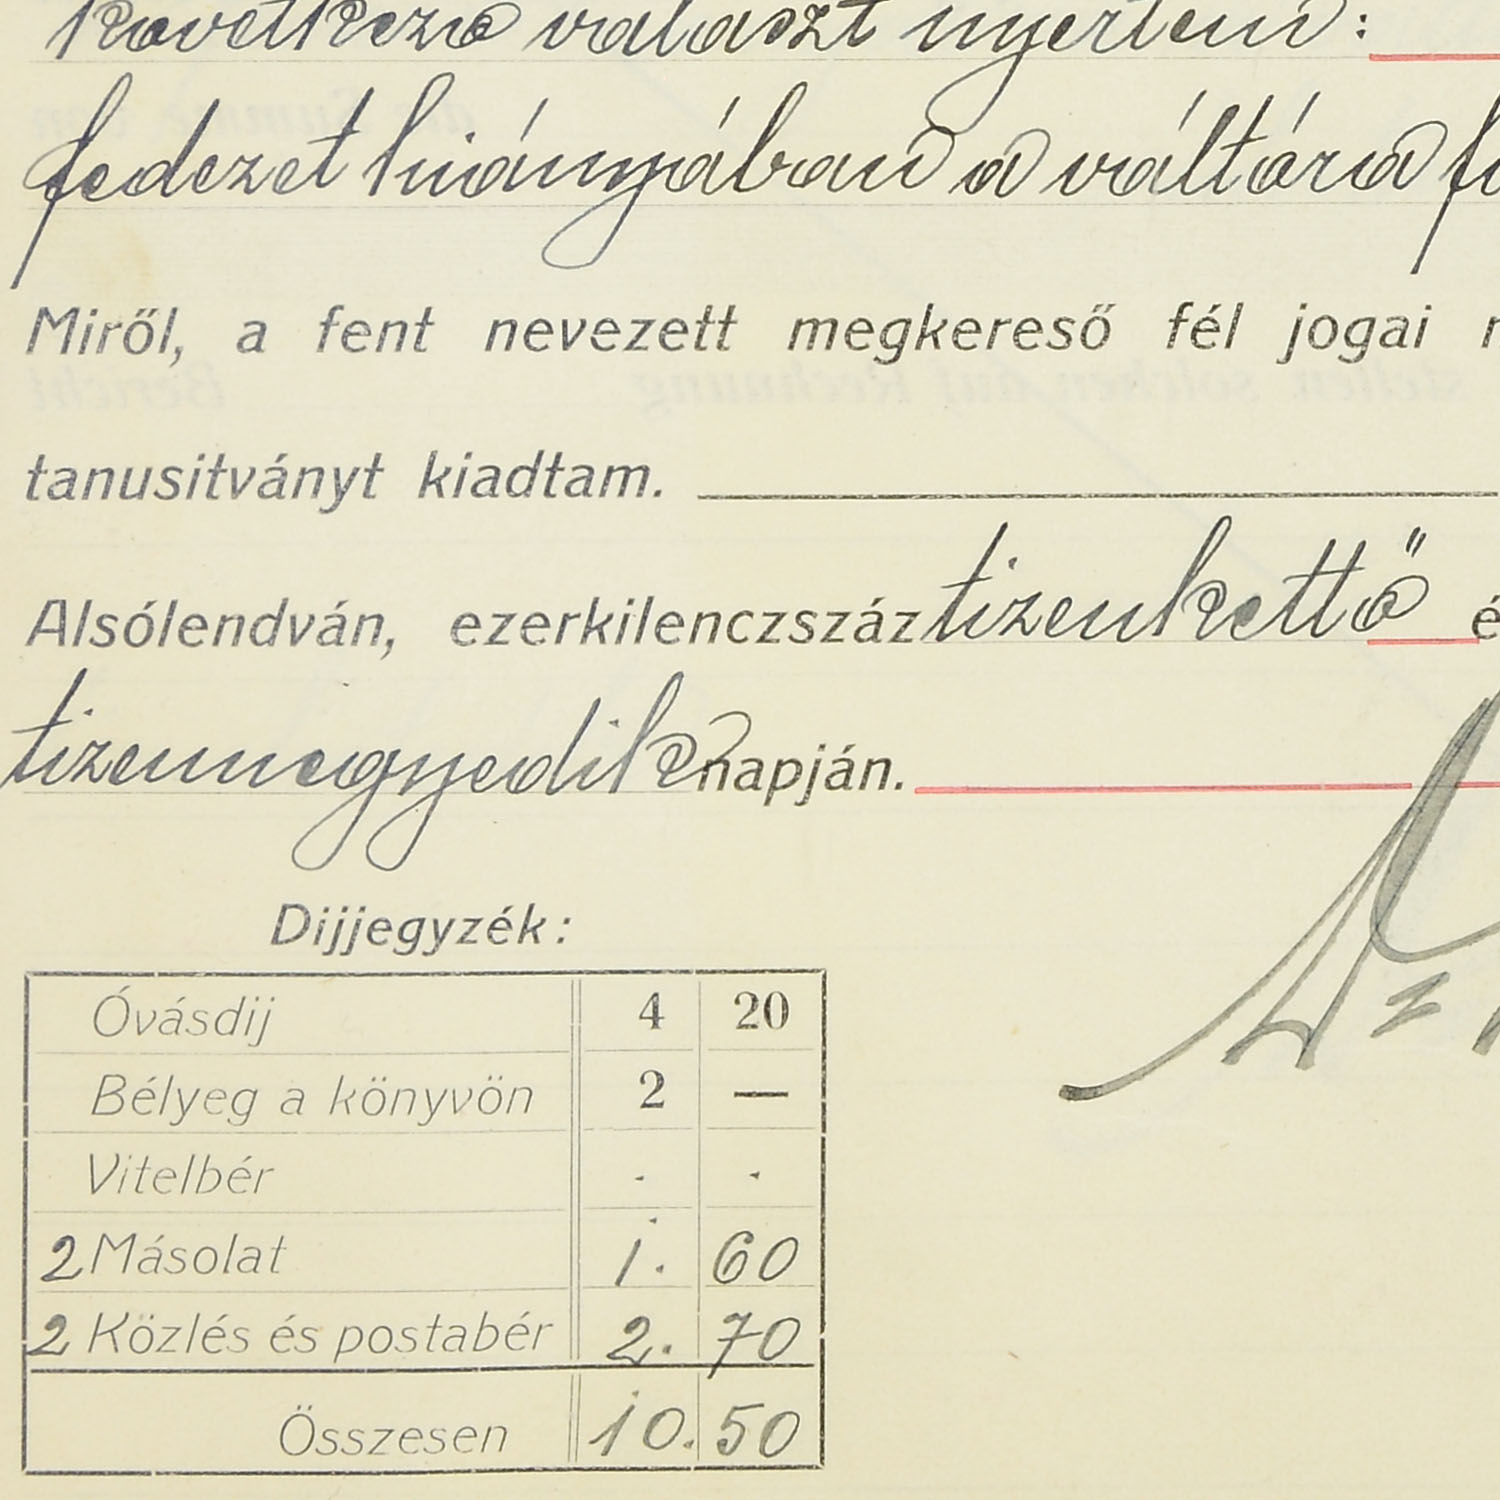 következő választ nyertem:
fedezet hiányában a váltóra
Miről, a fent nevezett megkereső fél jogai
tanusitványt kiadtam.
Alsólendván, ezerkilenczszáztizenkettő
tizennegyedik napján.
Dijjegyzék:
Óvásdij 4 20
Bélyeg a könyvön 2 —
Vitelbér . .
2 Másolat 1. 60
2 Közlés és postabér 2. 70
Összesen 10. 50